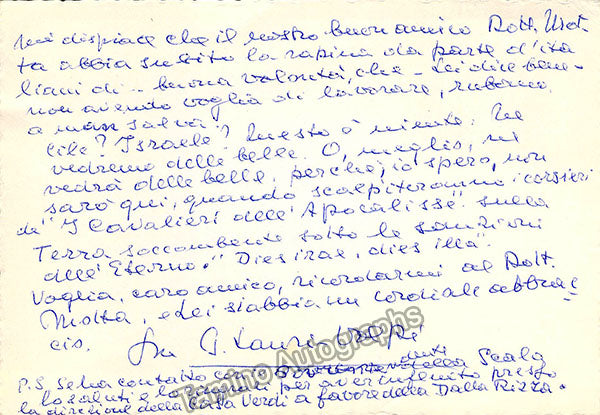 mi dispiace che il nostro buon amico Dott. Mot-
ta abbia subito la rapina da parte d'ita
liani di - buona volontà, che - Lei dice bene -
non avendo voglia di lavorare, rubano
a man salva!
E Israele? Questo è niente. Ne
vedremo delle belle. O, meglio, ne
vedrà delle belle, perché, io spero, non
sarò qui, quando scalpiteranno i corsieri
de "I Cavalieri dell'Apocalisse" sulla
Terra soccombente sotto le sanzioni
dell'Eterno. "Dies irae, dies illa".
Voglia, caro amico, ricordarmi al Dott.
Motta, e Lei s'abbia un cordiale abbrac
cio.
G. Lauri-Volpi
P.S. Se ha contatto con della Scala
lo saluti e lo per aver influito presso
la direzione della Casa Verdi a favore della Dalla Rizza.
Tamino Autographs